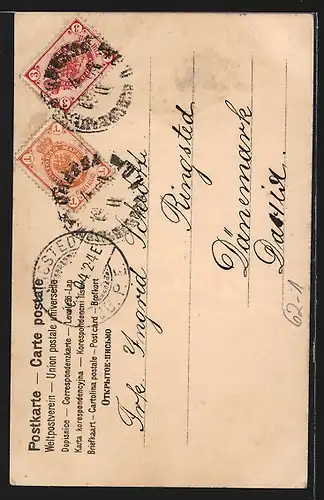 Postkarte — Carte postale
Weltpostverein — Union postale universelle
Dopisnice — Correspondenzkarte — Levelező-Lap
Karta korespondencyjna — Korespondenční lístek
Briefkaart — Cartolina postale — Post card — Brefkort
Открытое-письмо
Frk Yngrid
Ringsted
Dänemark
Dania
62-1
3
3
1
1